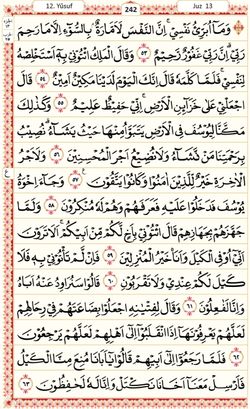 12. Yūsuf
242
Juz 13
وَمَآ اُبَرِّئُ نَفْسِیْ ۚ اِنَّ النَّفْسَ لَاَمَّارَةٌۢ بِالسُّوْٓءِ اِلَّا مَا رَحِمَ
رَبِّیْ ؕ اِنَّ رَبِّیْ غَفُوْرٌ رَّحِیْمٌ ﴿٥٣﴾ وَقَالَ الْمَلِكُ ائْتُوْنِیْ بِهٖۤ اَسْتَخْلِصْهُ
لِنَفْسِیْ ۚ فَلَمَّا كَلَّمَهٗ قَالَ اِنَّكَ الْیَوْمَ لَدَیْنَا مَكِیْنٌ اَمِیْنٌ ﴿٥٤﴾ قَالَ
اجْعَلْنِیْ عَلٰی خَزَآئِنِ الْاَرْضِ ۚ اِنِّیْ حَفِیْظٌ عَلِیْمٌ ﴿٥٥﴾ وَكَذٰلِكَ
مَكَّنَّا لِیُوْسُفَ فِی الْاَرْضِ ۚ یَتَبَوَّاُ مِنْهَا حَیْثُ یَشَآءُ ؕ نُصِیْبُ
بِرَحْمَتِنَا مَنْ نَّشَآءُ وَلَا نُضِیْعُ اَجْرَ الْمُحْسِنِیْنَ ﴿٥٦﴾ وَلَاَجْرُ
الْاٰخِرَةِ خَیْرٌ لِّلَّذِیْنَ اٰمَنُوْا وَكَانُوْا یَتَّقُوْنَ ﴿٥٧﴾ وَجَآءَ اِخْوَةُ
یُوْسُفَ فَدَخَلُوْا عَلَیْهِ فَعَرَفَهُمْ وَهُمْ لَهٗ مُنْكِرُوْنَ ﴿٥٨﴾ وَلَمَّا
جَهَّزَهُمْ بِجَهَازِهِمْ قَالَ ائْتُوْنِیْ بِاَخٍ لَّكُمْ مِّنْ اَبِیْكُمْ ۚ اَلَا تَرَوْنَ
اَنِّیْۤ اُوْفِی الْكَیْلَ وَاَنَا خَیْرُ الْمُنْزِلِیْنَ ﴿٥٩﴾ فَاِنْ لَّمْ تَاْتُوْنِیْ بِهٖ فَلَا
كَیْلَ لَكُمْ عِنْدِیْ وَلَا تَقْرَبُوْنِ ﴿٦٠﴾ قَالُوْا سَنُرَاوِدُ عَنْهُ اَبَاهُ
وَاِنَّا لَفٰعِلُوْنَ ﴿٦١﴾ وَقَالَ لِفِتْیٰنِهِ اجْعَلُوْا بِضَاعَتَهُمْ فِیْ رِحَالِهِمْ
لَعَلَّهُمْ یَعْرِفُوْنَهَاۤ اِذَا انْقَلَبُوْۤا اِلٰۤی اَهْلِهِمْ لَعَلَّهُمْ یَرْجِعُوْنَ
﴿٦٢﴾ فَلَمَّا رَجَعُوْۤا اِلٰۤی اَبِیْهِمْ قَالُوْا یٰۤاَبَانَا مُنِعَ مِنَّا الْكَیْلُ
فَاَرْسِلْ مَعَنَاۤ اَخَانَا نَكْتَلْ وَاِنَّا لَهٗ لَحٰفِظُوْنَ ﴿٦٣﴾